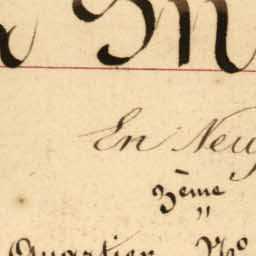 En Neu
3ème
"
Quartier No